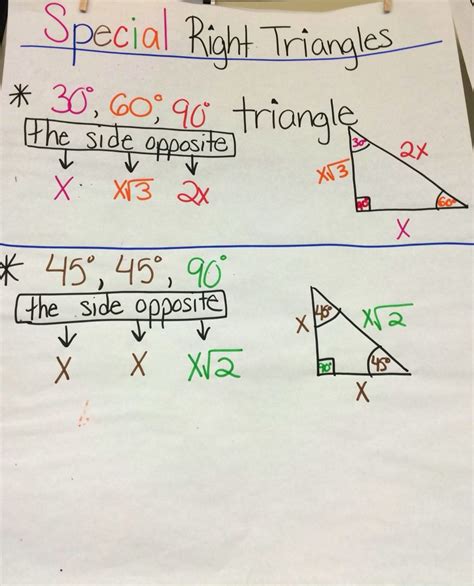 Special Right Triangles
* 30°, 60°, 90° triangle
the side opposite
x x√3 2x
30°
x√3
2x
90°
60°
x
* 45°, 45°, 90°
the side opposite
x x x√2
45°
x
x√2
90°
45°
x